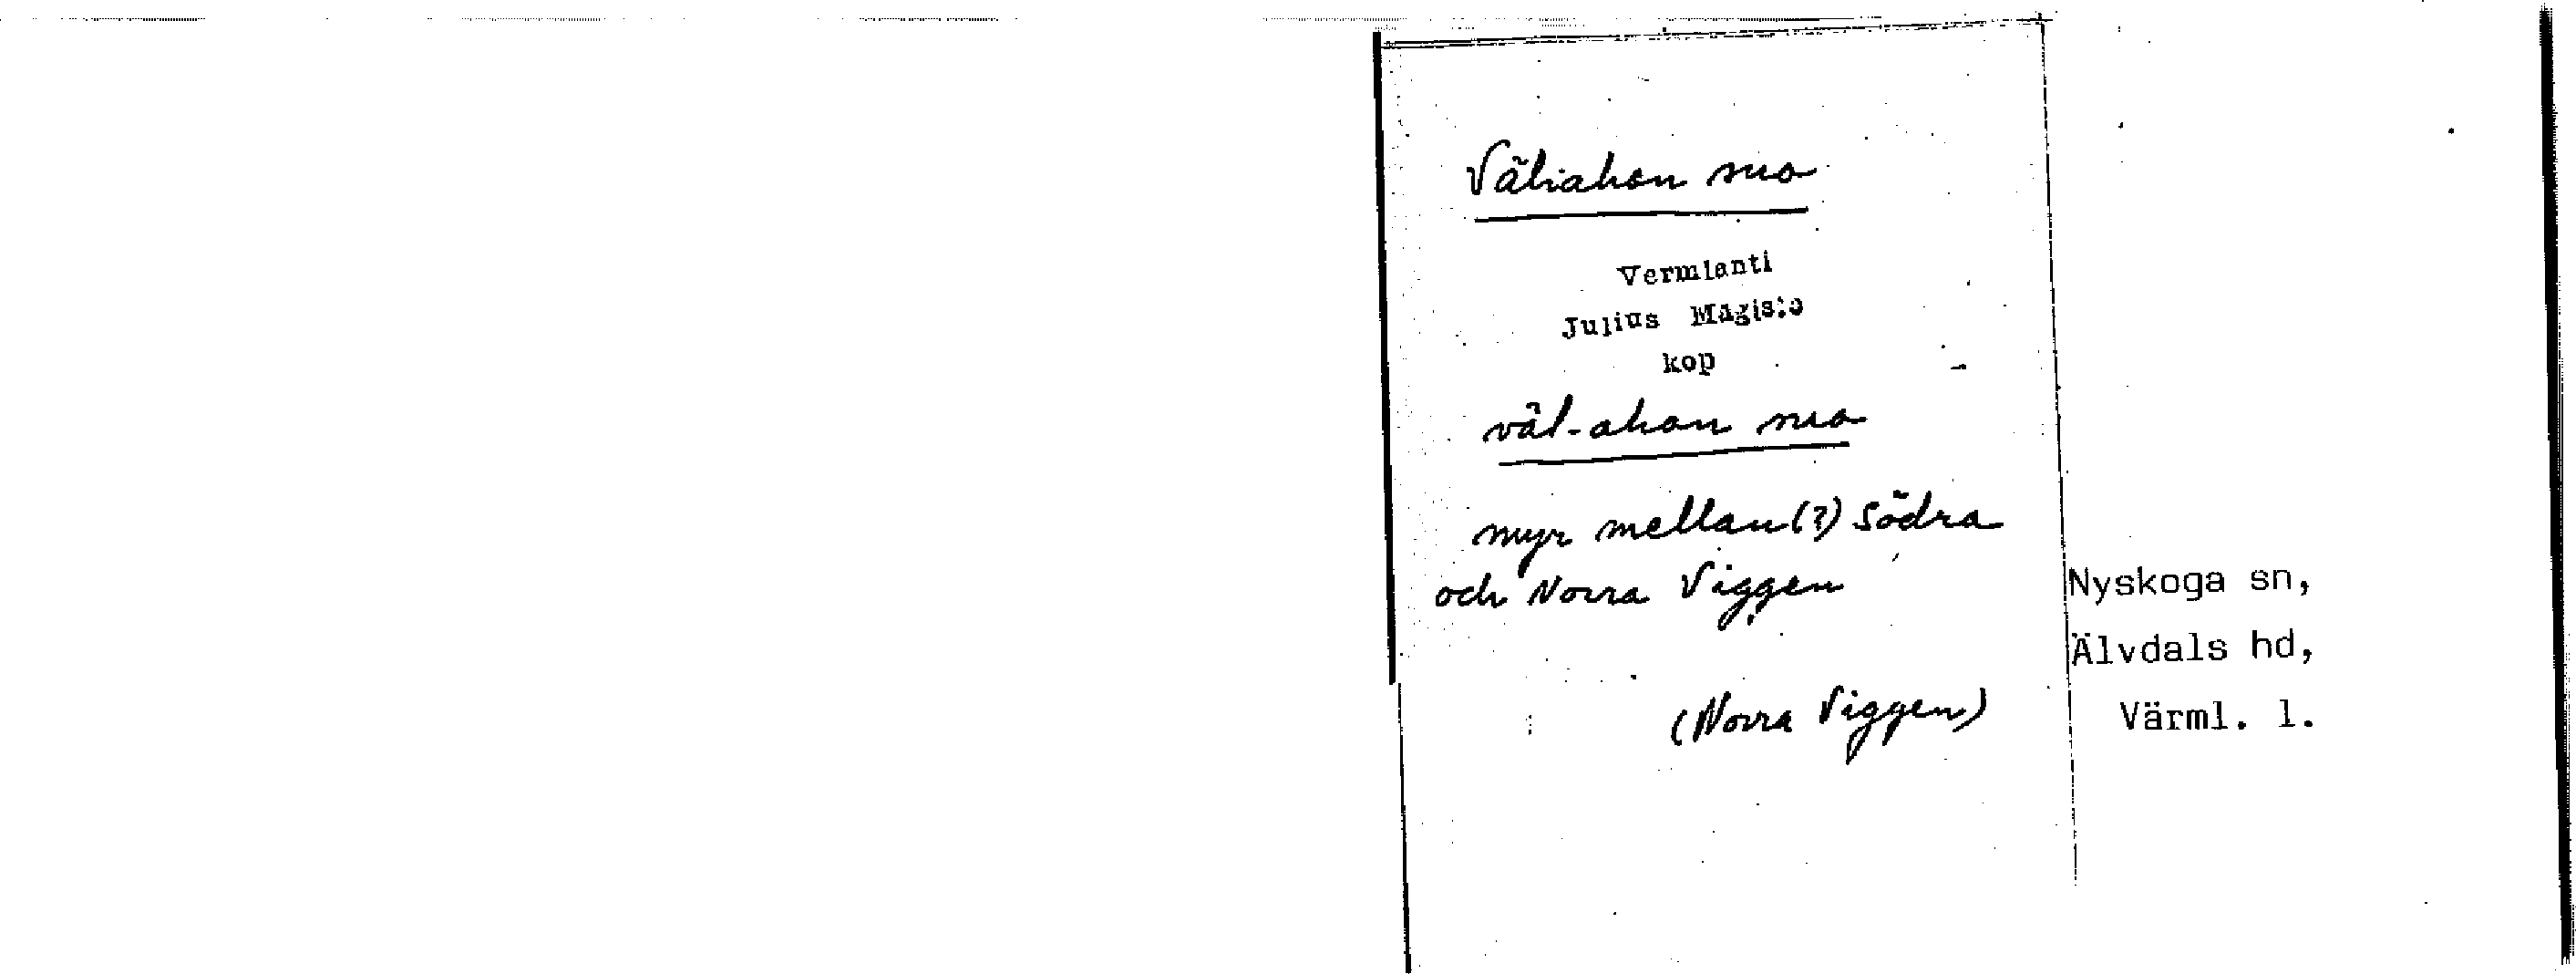 Väliahon suo
Vermlanti
Julius Mägiste
kop
väl-ahon suo
myr mellan (?) Södra
och Norra Viggen
(Norra Viggen)
Nyskoga sn,
Älvdals hd,
Värml. l.